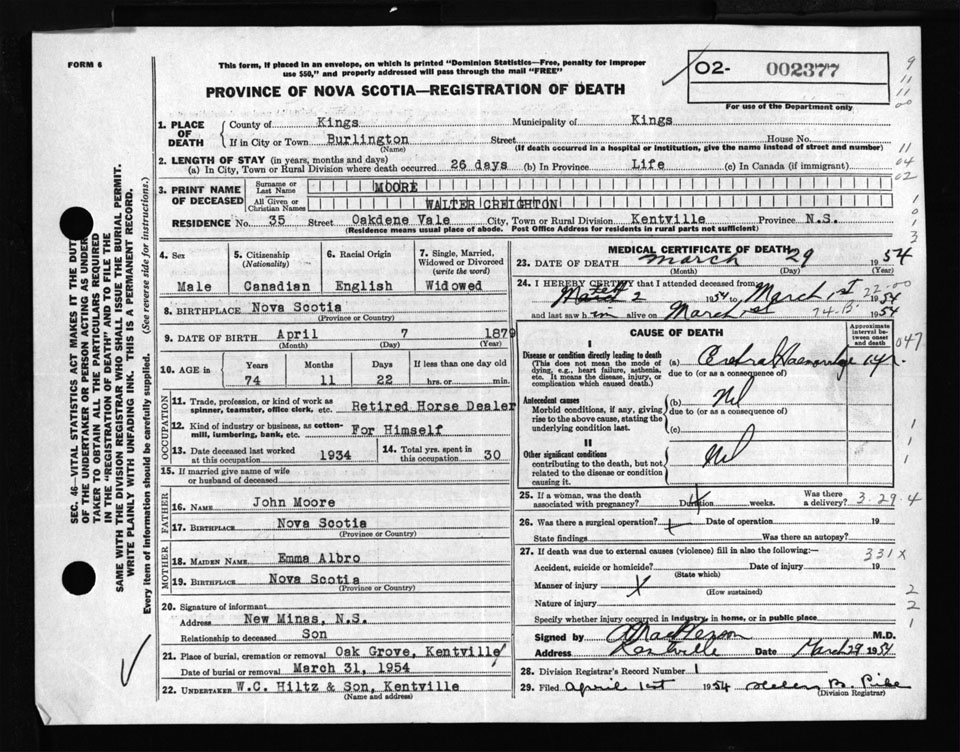 FORM 6
This form, if placed in an envelope, on which is printed "Dominion Statistics—Free, penalty for improper
use $50," and properly addressed will pass through the mail "FREE"
PROVINCE OF NOVA SCOTIA—REGISTRATION OF DEATH
O2- 002377
For use of the Department only
9
11
11
00
1. PLACE OF DEATH
County of Kings Municipality of Kings
If in City or Town Burlington Street House No.
(Name) (If death occurred in a hospital or institution, give the name instead of street and number)
11
2. LENGTH OF STAY (in years, months and days)
(a) In City, Town or Rural Division where death occurred 26 days (b) In Province Life (c) In Canada (if immigrant)
04
02
3. PRINT NAME OF DECEASED
Surname or Last Name MOORE
All Given or Christian Names WALTER CREIGHTON
RESIDENCE No. 35 Street Oakdene Vale City, Town or Rural Division Kentville Province N.S.
(Residence means usual place of abode. Post Office Address for residents in rural parts not sufficient)
1
0
1
3
SEC. 46—VITAL STATISTICS ACT MAKES IT THE DUTY
OF THE UNDERTAKER OR PERSON ACTING AS UNDER-
TAKER TO OBTAIN ALL THE PARTICULARS REQUIRED
IN THE "REGISTRATION OF DEATH" AND TO FILE THE
SAME WITH THE DIVISION REGISTRAR WHO SHALL ISSUE THE BURIAL PERMIT.
WRITE PLAINLY WITH UNFADING INK. THIS IS A PERMANENT RECORD.
Every item of information should be carefully supplied. (See reverse side for instructions.)
4. Sex
Male
5. Citizenship
(Nationality)
Canadian
6. Racial Origin
English
7. Single, Married,
Widowed or Divorced
(write the word)
Widowed
8. BIRTHPLACE Nova Scotia
(Province or Country)
9. DATE OF BIRTH April 7 1879
(Month) (Day) (Year)
10. AGE in
Years Months Days If less than one day old
74 11 22 hrs. or min.
OCCUPATION
11. Trade, profession, or kind of work as
spinner, teamster, office clerk, etc. Retired Horse Dealer
12. Kind of industry or business, as cotton-
mill, lumbering, bank, etc. For Himself
13. Date deceased last worked
at this occupation 1934
14. Total yrs. spent in
this occupation 30
15. If married give name of wife
or husband of deceased
FATHER
16. NAME John Moore
17. BIRTHPLACE Nova Scotia
(Province or Country)
MOTHER
18. MAIDEN NAME Emma Albro
19. BIRTHPLACE Nova Scotia
(Province or Country)
20. Signature of informant
Address New Minas, N.S.
Relationship to deceased Son
21. Place of burial, cremation or removal Oak Grove, Kentville
Date of burial or removal March 31, 1954
22. UNDERTAKER W.C. Hiltz & Son, Kentville
(Name and address)
MEDICAL CERTIFICATE OF DEATH
23. DATE OF DEATH March 29 1954
(Month) (Day) (Year)
24. I HEREBY CERTIFY that I attended deceased from
March 2 1954 to March 1st 1954
22-00
and last saw him alive on March 1st 1954
CAUSE OF DEATH
Approximate
interval be-
tween onset
and death
047
I
Disease or condition directly leading to death
(This does not mean the mode of
dying, e.g., heart failure, asthenia,
etc. It means the disease, injury, or
complication which caused death.)
(a)
due to (or as a consequence of)
Antecedent causes
Morbid conditions, if any, giving
rise to the above cause, stating the
underlying condition last.
(b) Nil
due to (or as a consequence of)
(c)
II
Other significant conditions
contributing to the death, but not
related to the disease or condition
causing it.
Nil
1
1
1
25. If a woman, was the death
associated with pregnancy? Duration weeks. Was there
a delivery?
3.29.4
26. Was there a surgical operation? Date of operation 19
State findings Was there an autopsy?
27. If death was due to external causes (violence) fill in also the following:—
331X
Accident, suicide or homicide? Date of injury 19
(State which)
Manner of injury X
(How sustained)
Nature of injury
2
2
Specify whether injury occurred in industry, in home, or in public place
1
Signed by M.D.
Address Kentville Date March 29 1954
28. Division Registrar's Record Number 1
29. Filed April 1st 1954 Helen B. Pike
(Division Registrar)